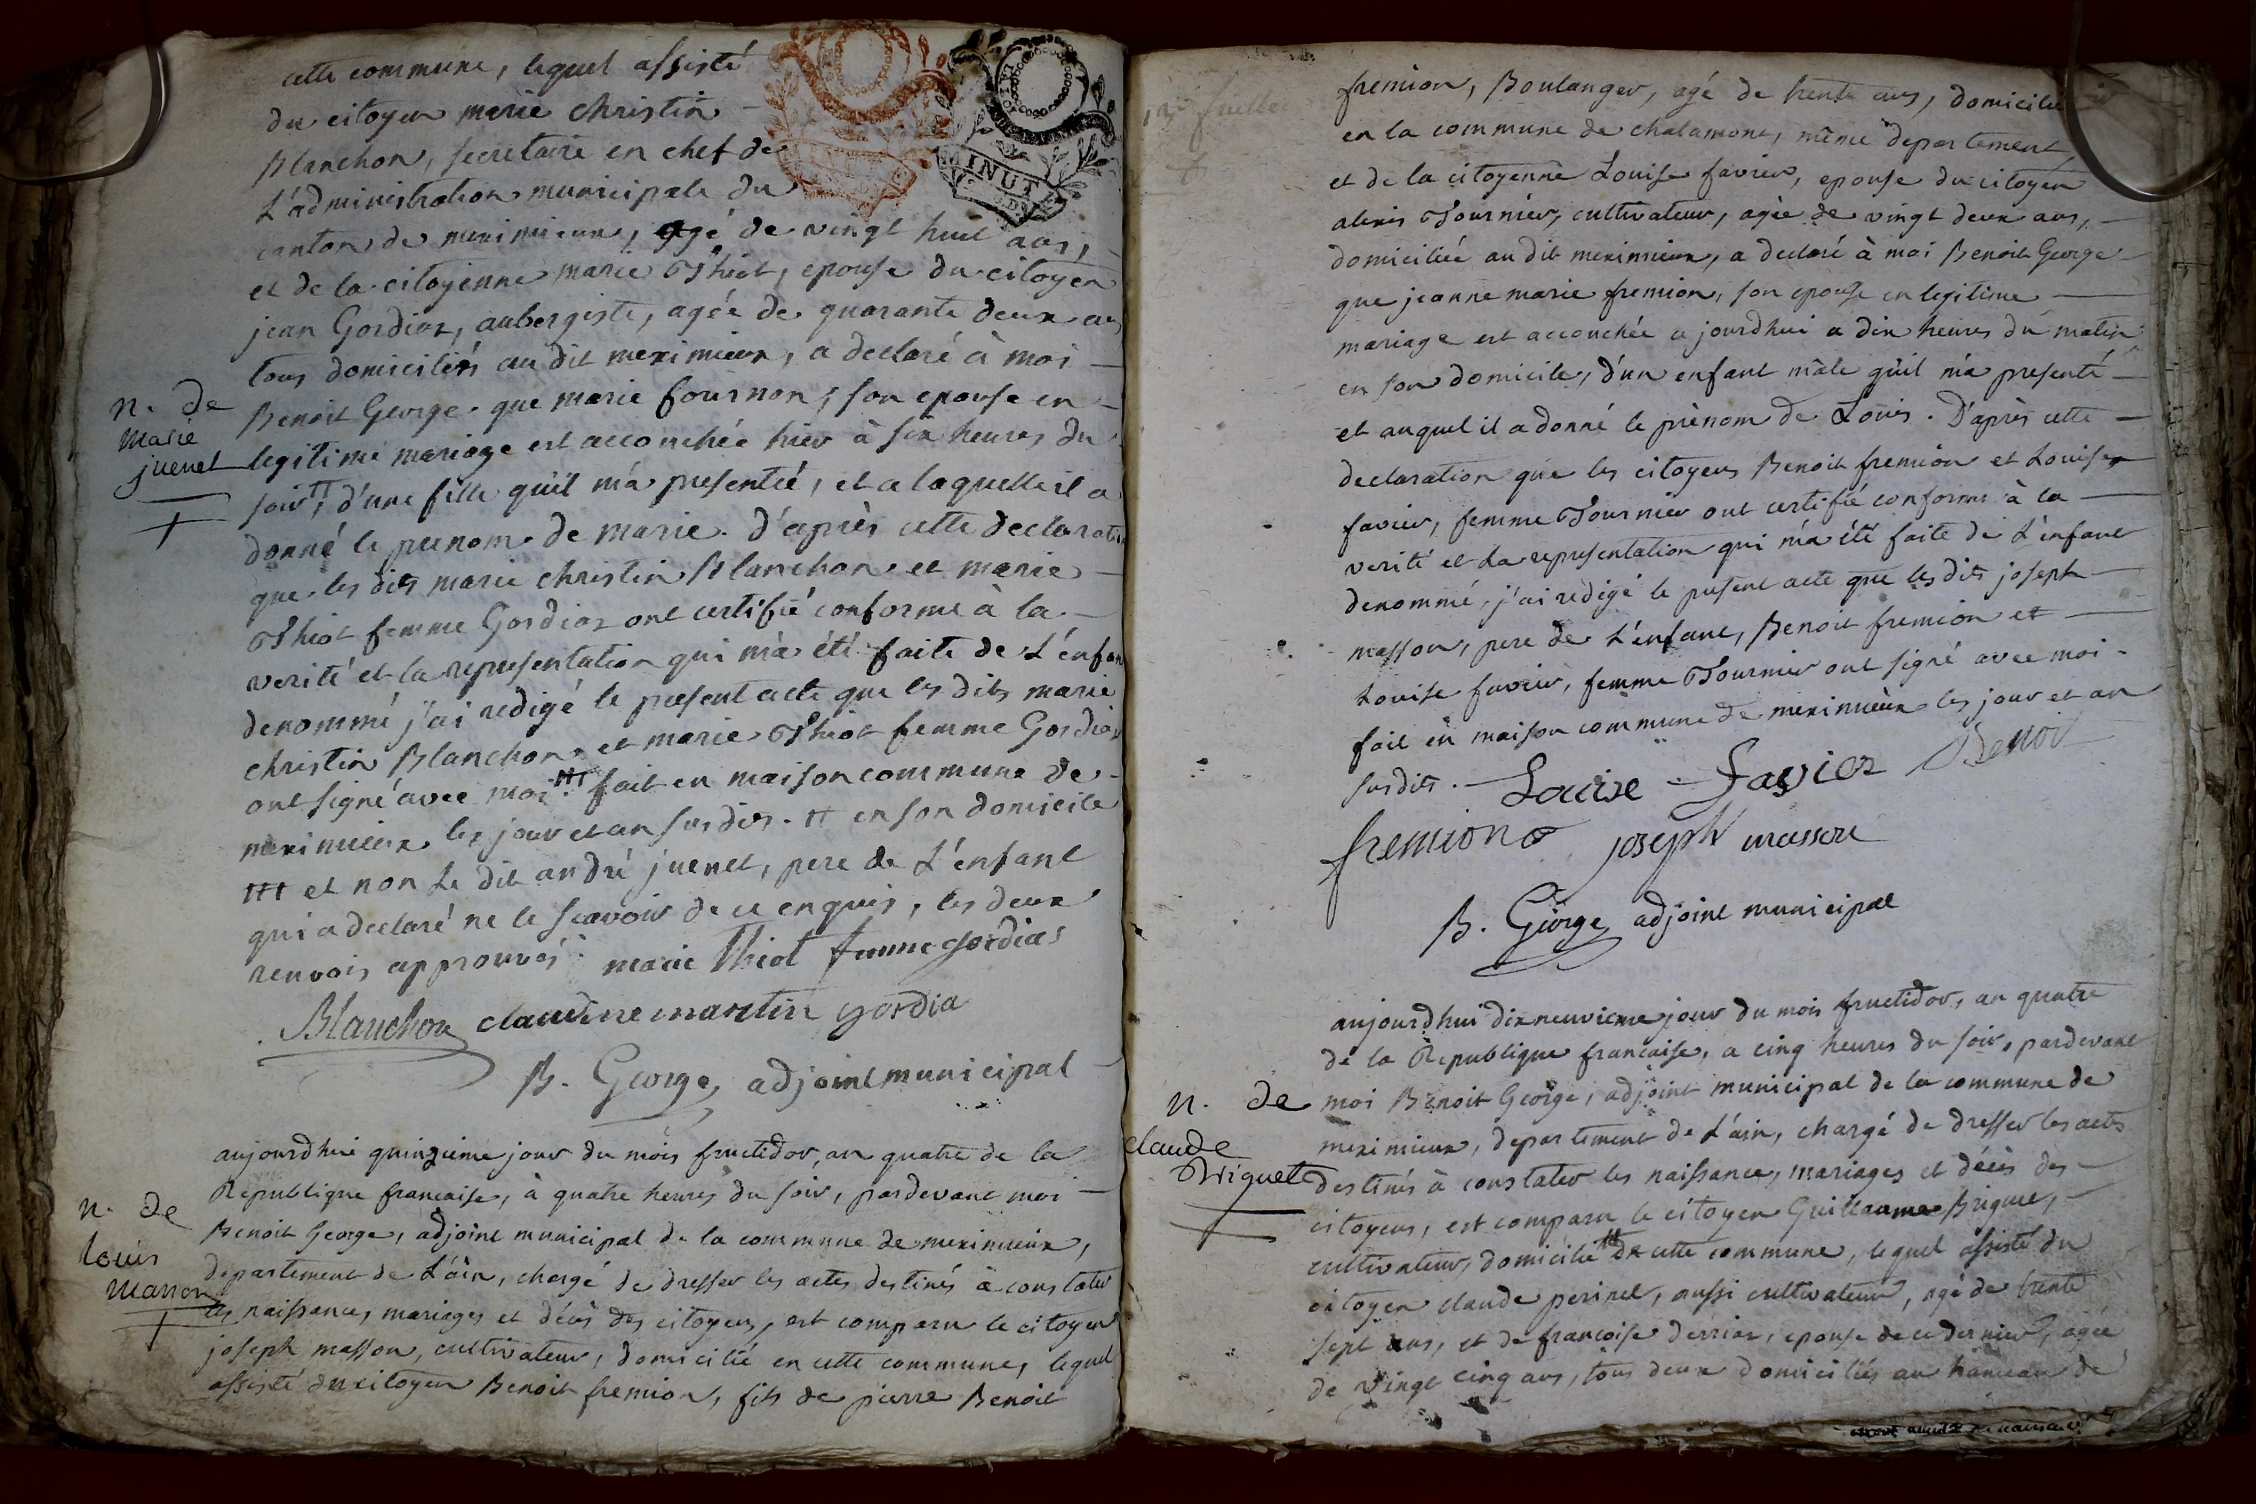 cette commune, lequel assisté
du citoyen marie christin
Blanchon, secretaire en chef de
L'administration municipale du
canton de meximieux, agé de vingt huit ans,
et de la citoyenne marie Thiot, epouse du citoyen
jean Gordiaz, aubergiste, agée de quarante deux ans
tous domiciliés au dit meximieux, a declaré à moi
n. de
marie
juenet
Benoit George que marie fournon, son epouse en
legitime mariage est accouchée hier à six heures du
soir, ++ d'une fille qu'il m'a presentée, et a laquelle il a
donné le prenom de marie. d'après cette declaration
que les dits marie christin Blanchon et marie
Thiot femme Gordiaz ont certifié conforme à la
verité et la representation qui m'a été faite de L'enfant
denommé j'ai redigé le present acte que les dits marie
christin Blanchon et marie Thiot femme Gordiaz
ont signé avec moi +++ fait en maison commune de
meximieux les jour et an susdits. ++ en son domicile
+++ et non Le dit andré juenet, pere de L'enfant
qui a declaré ne le scavoir de ce enquis, les deux
renvois approuvés. marie Thiot femme gordias
Blanchon claudine martin gordia
B. George, adjoint municipal
n. de
Louis
Masson
aujourdhui quinzieme jour du mois fructidor, an quatre de la
Republique francaise, à quatre heures du soir, pardevant moi
Benoit George, adjoint municipal de la commune de meximieux,
departement de L'ain, chargé de dresser les actes destinés à constater
les naissances, mariages et décès des citoyens, est comparu le citoyen
joseph masson, cultivateur, domicilié en cette commune, lequel
assisté du citoyen Benoit fremion, fils de pierre Benoit
MINUTE
fremion, Boulanger, agé de trente ans, domicilié
en la commune de chalamont, même departement
et de la citoyenne Louise favier, epouse du citoyen
alexis Tournier, cultivateur, agée de vingt deux ans,
domiciliée au dit meximieux, a declaré à moi Benoit George
que jeanne marie fremion, son epouse en legitime
mariage est accouchée a jourdhui a dix heures du matin
en son domicile, d'un enfant mâle qu'il m'a presenté
et auquel il a donné le prènom de Louis. D'après cette
declaration que les citoyens Benoit fremion et Louise
favier, femme Tournier ont certifié conforme à la
verité et la representation qui m'a été faite de L'enfant
denommé, j'ai redigé le present acte que les dits joseph
masson, pere de L'enfant, Benoit fremion et
Louise favier, femme Tournier ont signé avec moi
fait en maison commune de meximieux les jour et an
susdits. Louise Favier Benoi
fremion joseph masson
B. George adjoint municipal
n. de
claude
Briguet
aujourdhui dixneuvieme jour du mois fructidor, an quatre
de la Republique francaise, a cinq heures du soir, pardevant
moi Benoit George, adjoint municipal de la commune de
meximieux, departement de L'ain, chargé de dresser les actes
destinés à constater les naissances, mariages et décès des
citoyens, est comparu le citoyen Guillaume Briguet,
cultivateur, domicilié de cette commune, lequel assisté du
citoyen claude perinet, aussi cultivateur, agé de trente
sept ans, et de francoise derriaz, epouse de ce dernier, agée
de vingt cinq ans, tous deux domiciliés au hameau de